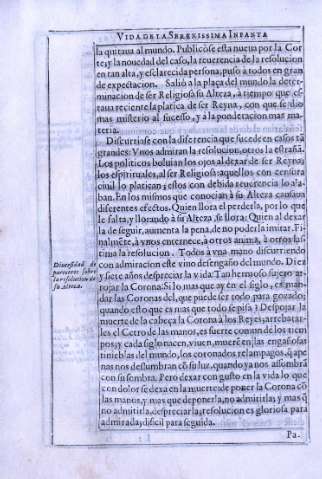 VIDA DE LA SERENISSIMA INFANTA
la quitaua al mundo. Publicòse esta nueua por la Cor
te; y la nouedad del caso, la reuerencia de la resolucion
en tan alta, y esclarecida persona, puso à todos en gran
de expectacion. Saliò a la plaça del mundo la deter-
minacion de ser Religiosa su Alteza, a tiempo que es-
taua reciente la platica de ser Reyna, con que se dio
mas misterio al sucesso, y a la ponderacion mas ma
teria.
Discurriase con la diferencia que sucede en casos tã
grandes. Vnos admiran la resolucion, otros la estrañã.
Los politicos boluian los ojos al dexar de ser Reyna;
los espirituales, al ser Religiosa: aquellos con censura
ciuil lo platican; estos con debida reuerencia lo ala-
ban. En los mismos que conocian à su Alteza causaua
diferentes efectos. Quien llora el perderla, por lo que
le falta, y llorando à su Alteza, se llora: Quien al dexar
la de seguir, aumenta la pena, de no poder la imitar. Fi-
nalmẽte, à vnos enternece, a otros anima, à otros las-
tima la resolucion. Todos à vna mano discurriendo
con admiracion este viuo desengaño del mundo. Diez
y siete años despreciar la vida: Tan hermoso sujeto arro-
jar la Corona: Si lo mas que ay en el siglo, es man-
dar las Coronas del, que puede ser todo para gozado;
quando esto que es mas que todo se pisa? Despojar la
muerte de la cabeça la Corona à los Reyes; arrebatar-
les el Cetro de las manos, es suerte comun de los tiem
pos; y à cada siglo nacen, viuen, muerẽ en las engañosas
tinieblas del mundo, los coronados relampagos, q̃ ape
nas nos deslumbran cõ su luz, quando ya nos assombrã
con su sombra. Pero dexar con gusto en la vida lo que
con dolor se dexa en la muerte: deponer la Corona cõ
las manos, y mas que deponerla, no admitirla; y mas q̃
no admitirla, despreciarla, resolucion es gloriosa para
admirada; dificil para seguida.
Pa.
Diuersidad de
pareceres sobre
la resolucion de
su alteza.